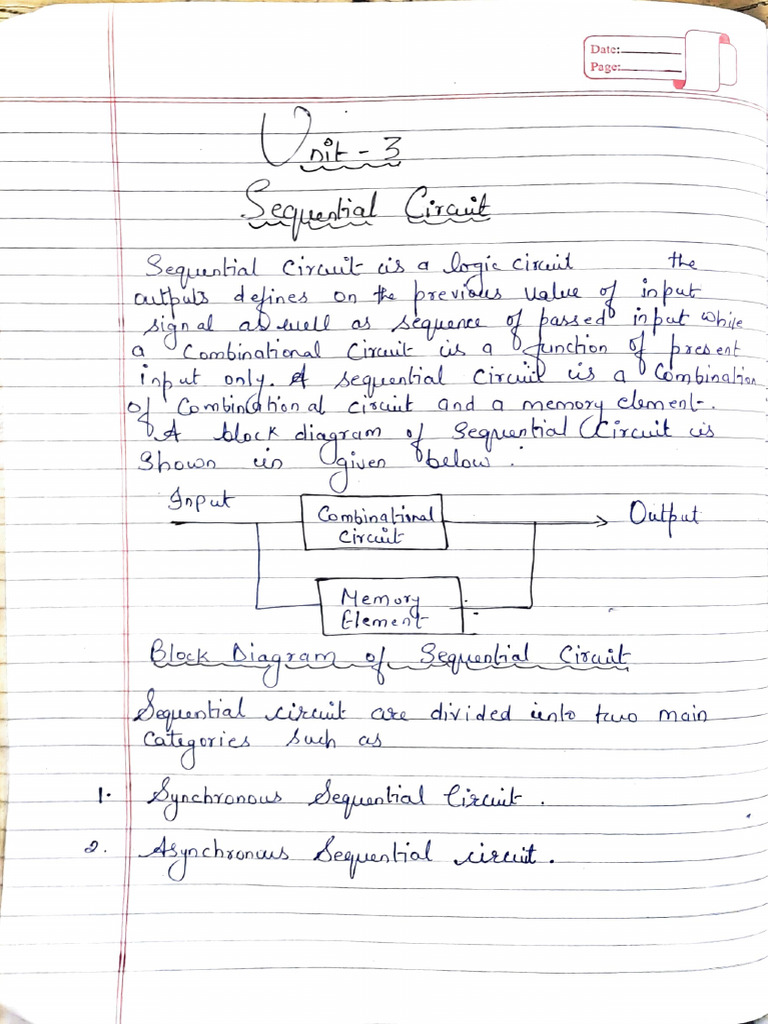 Date:
Page:
Unit - 3
Sequential Circuit
Sequential Circuit is a logic circuit the
outputs defines on the previous value of input
signal as well as sequence of passed input while
a Combinational Circuit is a function of present
input only. A sequential Circuit is a Combination
of Combinational circuit and a memory element.
A block diagram of Sequential Circuit is
Shown in given below.
Input
Combinational
Circuit
Output
Memory
Element
Block Diagram of Sequential Circuit
Sequential circuit are divided into two main
Categories such as
1. Synchronous Sequential Circuit.
2. Asynchronous Sequential circuit.